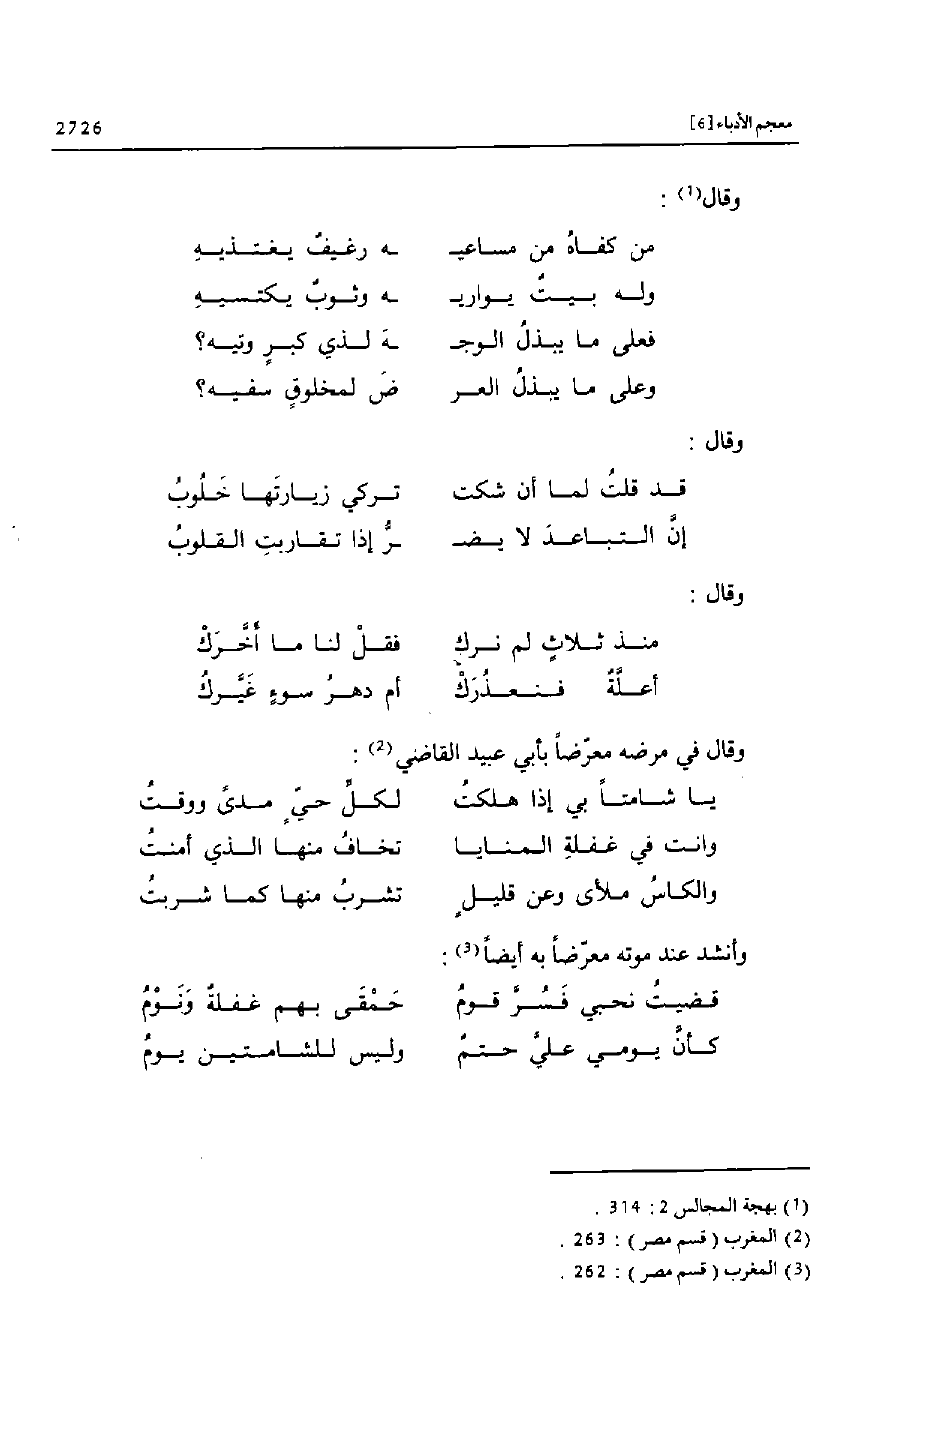 معجم الأدباء [6] 2726
وقال(1) :
من كفاهُ من مساعيـ ـه رغيفٌ يغتذيهِ
وله بيتٌ يواريـ ـه وثوبٌ يكتسيهِ
فعلى ما يبذلُ الوجـ ـهَ لذي كبرٍ وتيه؟
وعلى ما يبذلُ العر ضَ لمخلوقٍ سفيه؟
وقال :
قد قلتُ لما أن شكت تركي زيارتَها خَلُوبُ
إنَّ التباعدَ لا يضـ ـرُّ إذا تقاربتِ القلوبُ
وقال :
منذ ثلاثٍ لم نركْ فقلْ لنا ما أَخَّرَكْ
أعلَّةٌ فنعذُرَكْ أم دهرُ سوءٍ غَيَّركْ
وقال في مرضه معرّضاً بأبي عبيد القاضي(2) :
يا شامتاً بي إذا هلكتُ لكلِّ حيٍّ مدىً ووقتُ
وانت في غفلةِ المنايا تخافُ منها الذي أمنتُ
والكاسُ ملأى وعن قليلٍ تشربُ منها كما شربتُ
وأنشد عند موته معرّضاً به أيضاً(3) :
قضيتُ نحبي فَسُرَّ قومُ حَمْقَى بهم غفلةٌ وَنَوْمُ
كأنَّ يومي عليَّ حتمٌ وليس للشامتين يومُ
(1) بهجة المجالس 2 : 314 .
(2) المغرب ( قسم مصر ) : 263 .
(3) المغرب ( قسم مصر ) : 262 .